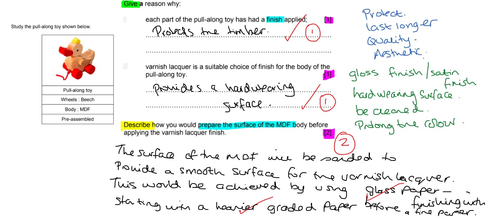 Study the pull-along toy shown below.
Pull-along toy
Wheels : Beech
Body : MDF
Pre-assembled
Give a reason why:
each part of the pull-along toy has had a finish applied; [1]
Protects the timber.
1
varnish lacquer is a suitable choice of finish for the body of the
pull-along toy. [1]
Provides a hardwearing
surface.
1
Describe how you would prepare the surface of the MDF body before
applying the varnish lacquer finish. [2]
2
The surface of the MDF will be sanded to
Provide a smooth surface for the varnish lacquer.
This would be achieved by using glass paper –
starting with a heavier graded paper before finishing with
a fine paper.
Protect.
last longer
Quality.
Aesthetic.
gloss finish / satin
finish
hardwearing surface.
be cleaned
Prolong the colour.